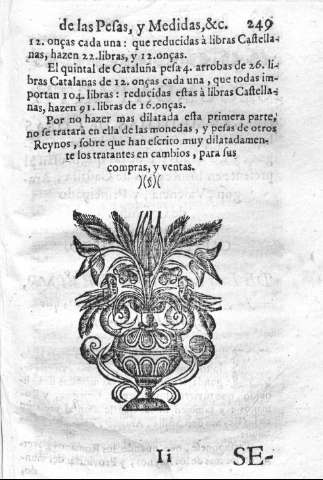 de las Pesas, y Medidas, &c. 249
12. onças cada una: que reducidas à libras Castella-
nas, hazen 22. libras, y 12. onças.
El quintal de Cataluña pesa 4. arrobas de 26. li-
bras Catalanas de 12. onças cada una, que todas im-
portan 104. libras: reducidas estas à libras Castella-
nas, hazen 91. libras de 16. onças.
Por no hazer mas dilatada esta primera parte,
no se tratarà en ella de las monedas, y pesas de otros
Reynos, sobre que han escrito muy dilatadamen-
te los tratantes en cambios, para sus
compras, y ventas.
)(§)(
Ii SE-